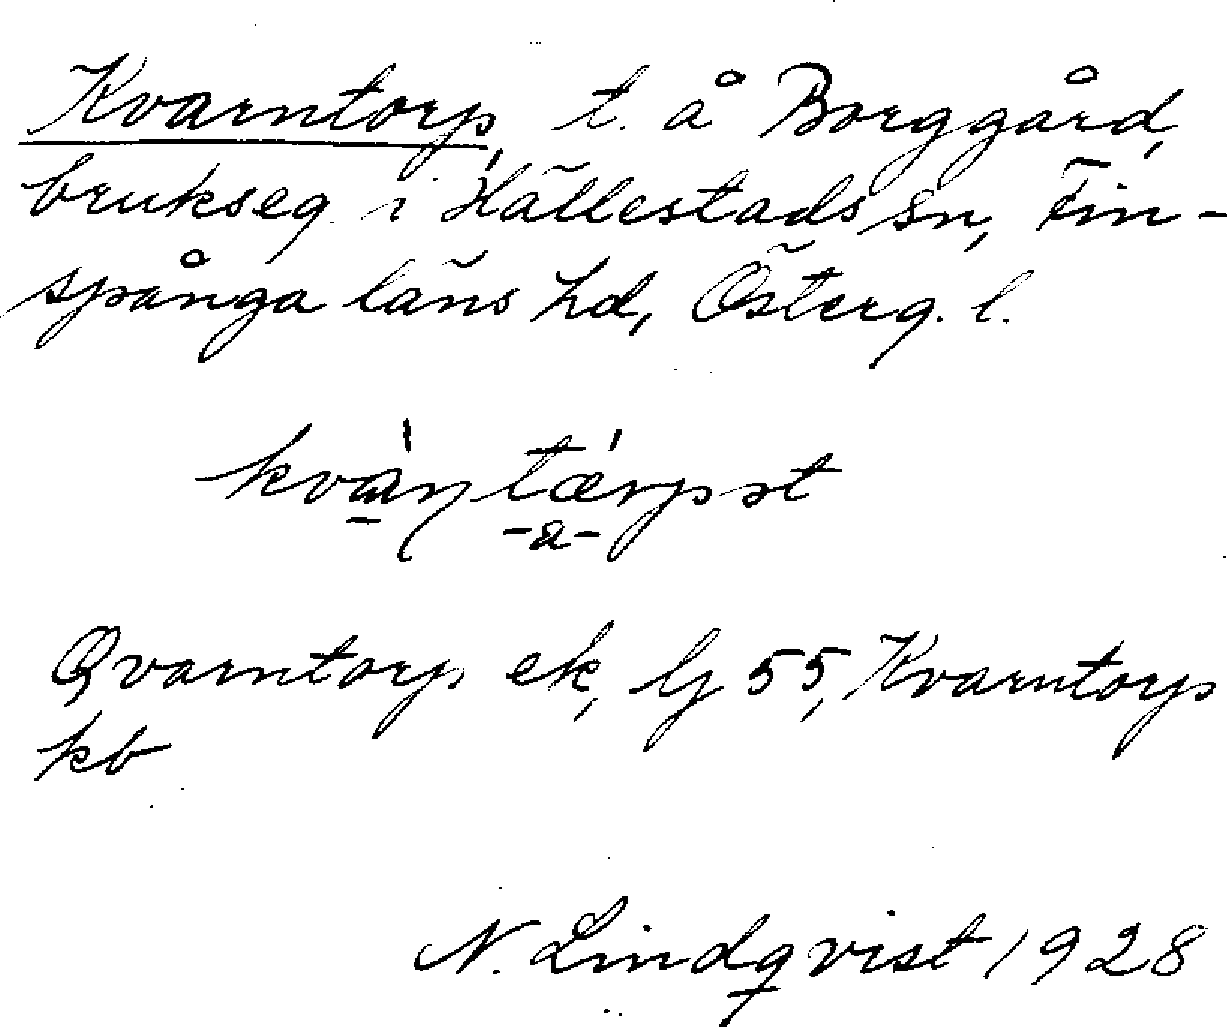 Kvarntorp, t. å Borggård,
brukseg. i Hällestads sn, Fin-
spånga läns hd, Österg. l.
-a-
Qvarntorp ek, lj 55, Kvarntorp
kb
N. Lindqvist 1928